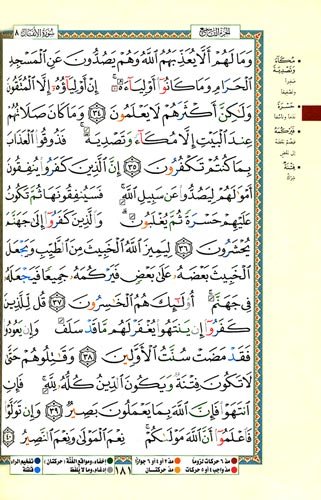 الجزء التاسع
سورة الأنفال ٨
وَمَا لَهُمْ أَلَّا يُعَذِّبَهُمُ ٱللَّهُ وَهُمْ يَصُدُّونَ عَنِ ٱلْمَسْجِدِ
ٱلْحَرَامِ وَمَا كَانُوٓا۟ أَوْلِيَآءَهُۥٓ ۚ إِنْ أَوْلِيَآؤُهُۥٓ إِلَّا ٱلْمُتَّقُونَ
وَلَٰكِنَّ أَكْثَرَهُمْ لَا يَعْلَمُونَ ٣٤ وَمَا كَانَ صَلَاتُهُمْ
عِندَ ٱلْبَيْتِ إِلَّا مُكَآءً وَتَصْدِيَةً ۚ فَذُوقُوا۟ ٱلْعَذَابَ
بِمَا كُنتُمْ تَكْفُرُونَ ٣٥ إِنَّ ٱلَّذِينَ كَفَرُوا۟ يُنفِقُونَ
أَمْوَٰلَهُمْ لِيَصُدُّوا۟ عَن سَبِيلِ ٱللَّهِ ۚ فَسَيُنفِقُونَهَا ثُمَّ تَكُونُ
عَلَيْهِمْ حَسْرَةً ثُمَّ يُغْلَبُونَ ۗ وَٱلَّذِينَ كَفَرُوٓا۟ إِلَىٰ جَهَنَّمَ
يُحْشَرُونَ ٣٦ لِيَمِيزَ ٱللَّهُ ٱلْخَبِيثَ مِنَ ٱلطَّيِّبِ وَيَجْعَلَ
ٱلْخَبِيثَ بَعْضَهُۥ عَلَىٰ بَعْضٍ فَيَرْكُمَهُۥ جَمِيعًا فَيَجْعَلَهُۥ
فِى جَهَنَّمَ ۚ أُو۟لَٰٓئِكَ هُمُ ٱلْخَٰسِرُونَ ٣٧ قُل لِّلَّذِينَ
كَفَرُوٓا۟ إِن يَنتَهُوا۟ يُغْفَرْ لَهُم مَّا قَدْ سَلَفَ وَإِن يَعُودُوا۟
فَقَدْ مَضَتْ سُنَّتُ ٱلْأَوَّلِينَ ٣٨ وَقَٰتِلُوهُمْ حَتَّىٰ
لَا تَكُونَ فِتْنَةٌ وَيَكُونَ ٱلدِّينُ كُلُّهُۥ لِلَّهِ ۚ فَإِنِ
ٱنتَهَوْا۟ فَإِنَّ ٱللَّهَ بِمَا يَعْمَلُونَ بَصِيرٌ ٣٩ وَإِن تَوَلَّوْا۟
فَٱعْلَمُوٓا۟ أَنَّ ٱللَّهَ مَوْلَىٰكُمْ ۚ نِعْمَ ٱلْمَوْلَىٰ وَنِعْمَ ٱلنَّصِيرُ ٤٠
مُكَاءً
وَتَصْدِيَةً
حَسْرَةً
فَيَرْكُمَهُ
فِتْنَةٌ
شرك
١٨١
مدّ ٦ حركات لزوماً
مدّ ٢ أو ٤ أو ٦ جوازاً
مدّ واجب ٤ أو ٥ حركات
مدّ حركتان
إخفاء، ومواقع الغنّة (حركتان)
إدغام، وما لا يُلفظ
قلقلة